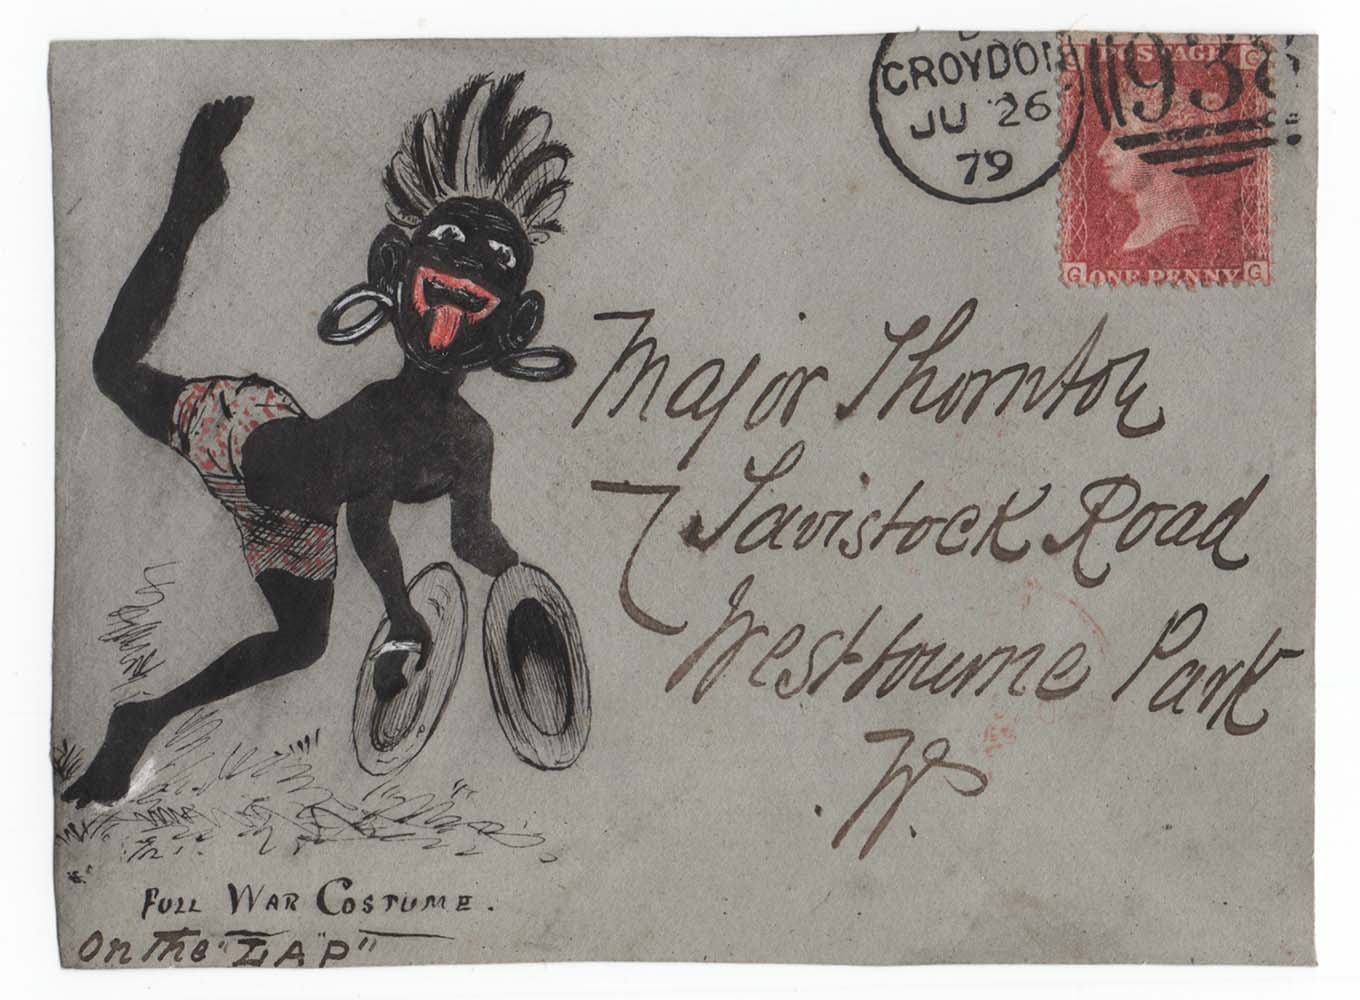 CROYDON
JU 26
79
938
POSTAGE
G G
G ONE PENNY G
Major Thornton
7 Tavistock Road
Westbourne Park
W.
FULL WAR COSTUME.
On the "ZAP"